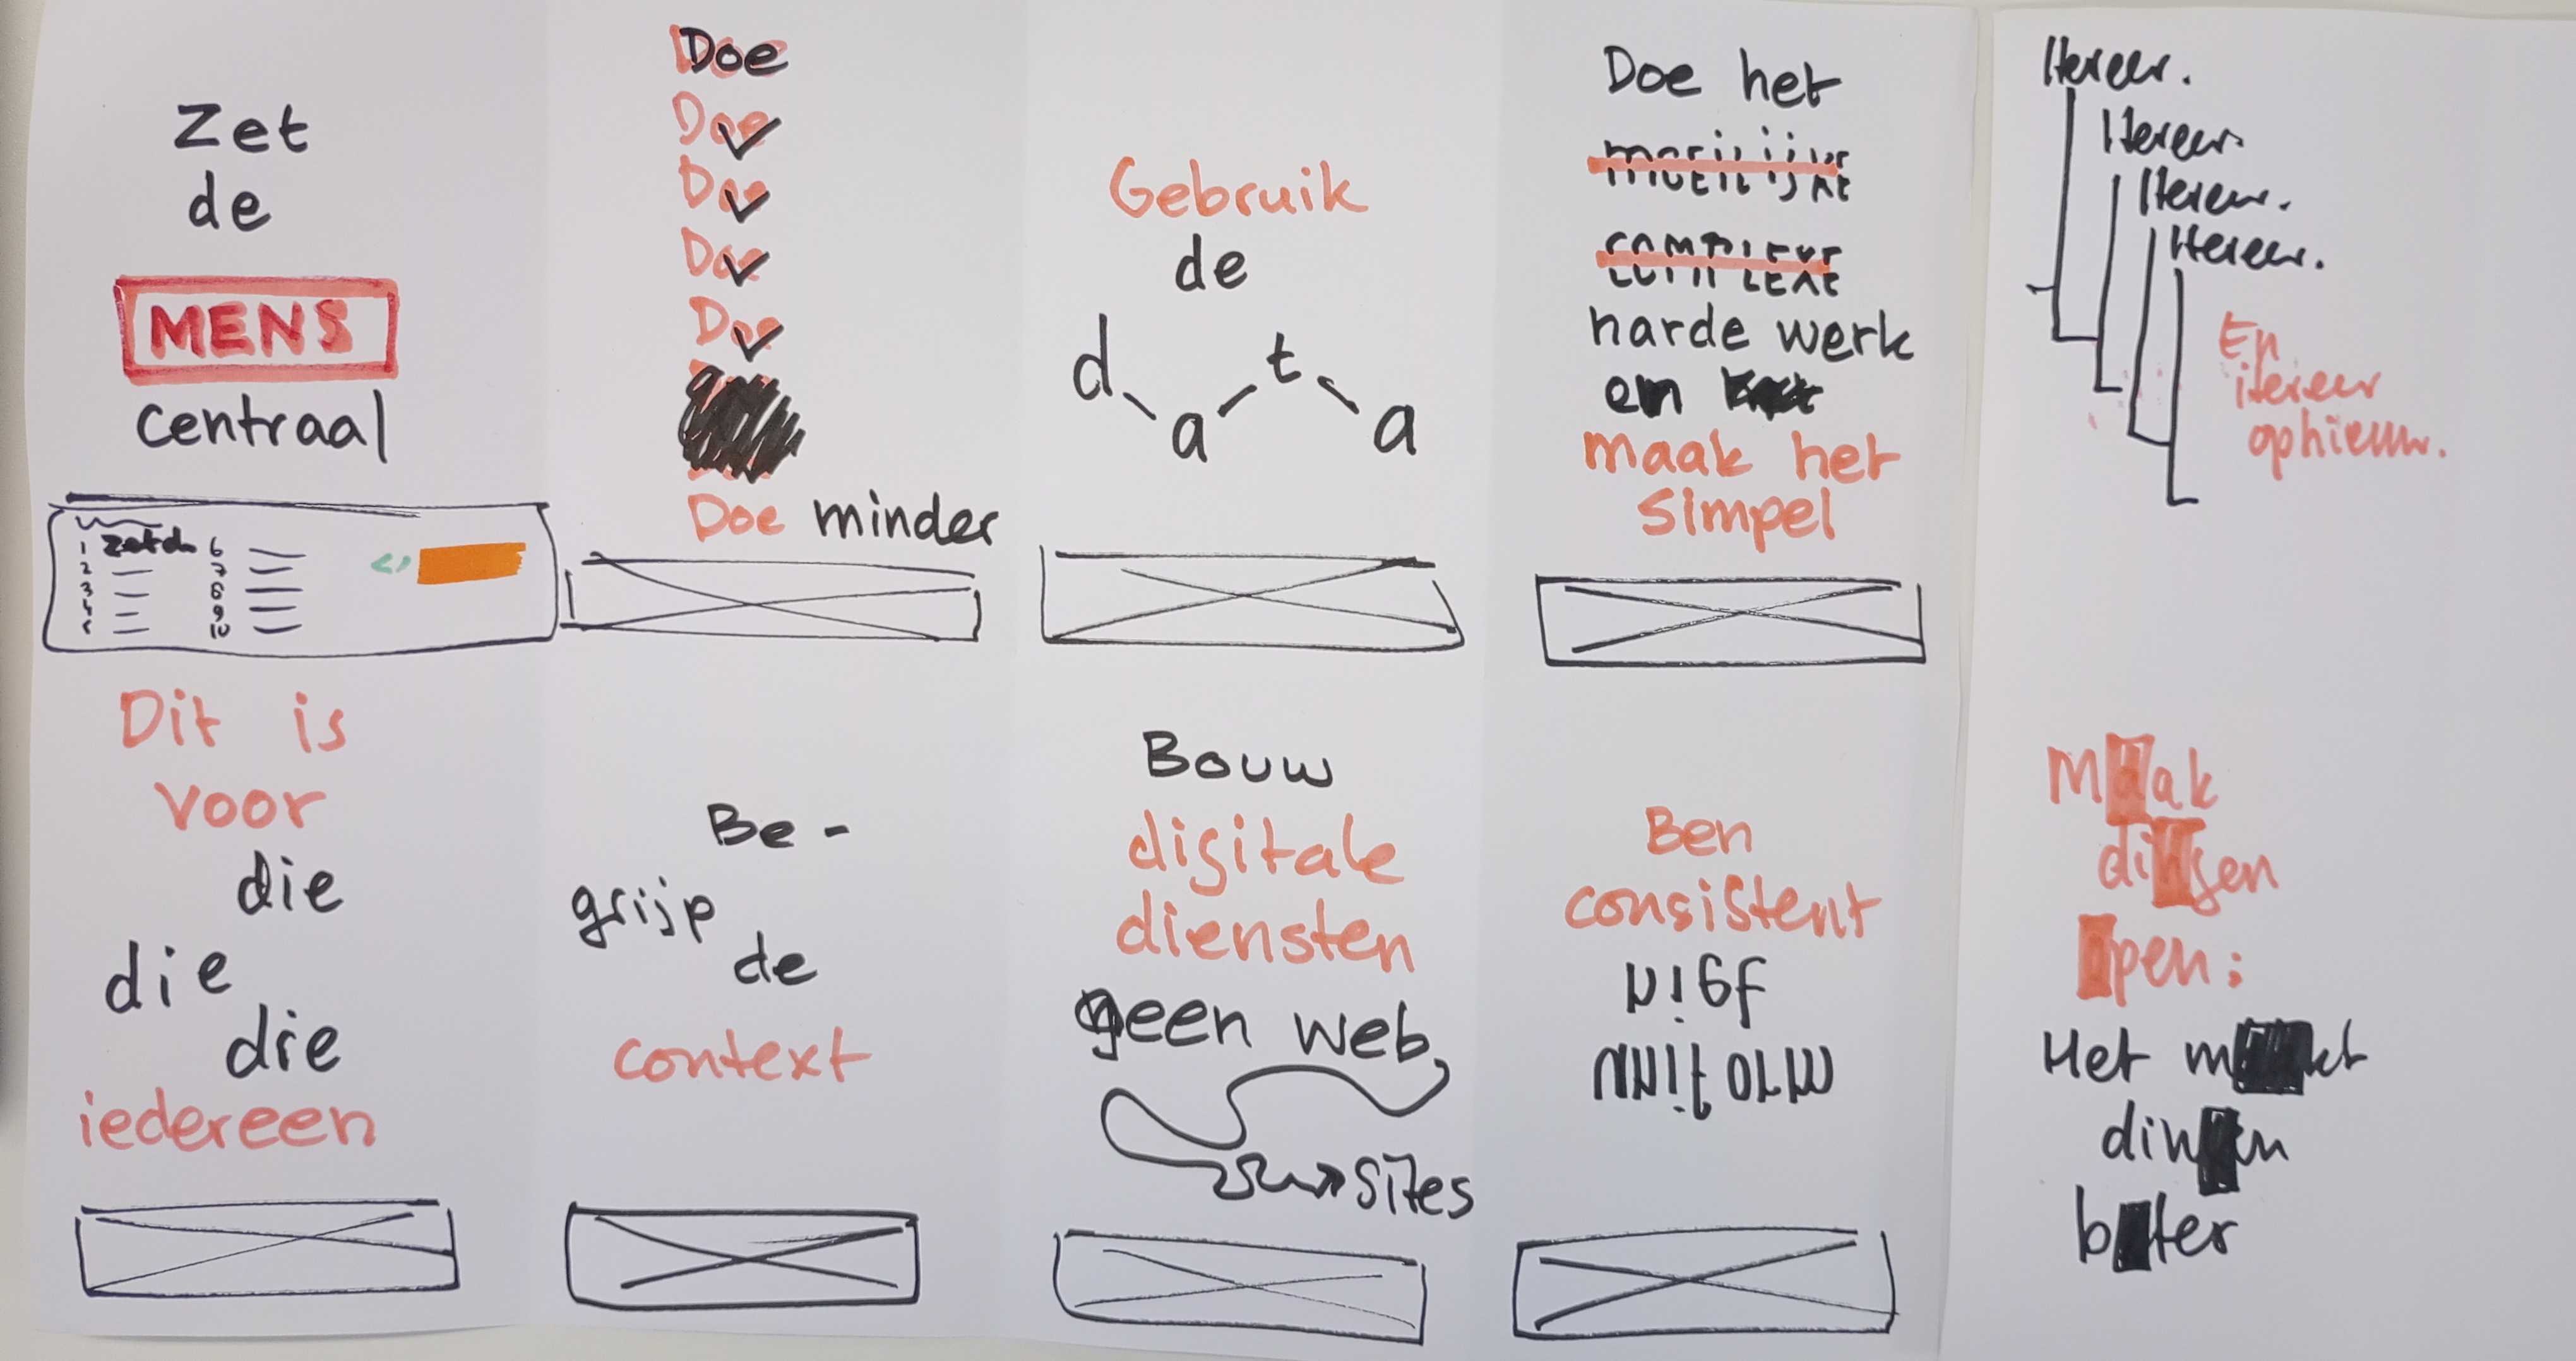 Zet
de
MENS
centraal
1 zet de 6
2 7
3 8
4 9
10
<>
Doe
Doe
Doe
Doe
Doe
Doe minder
Gebruik
de
data
Doe het
moeilijke
complexe
harde werk
en
maak het
simpel
Itereer.
Itereer.
Itereer.
Itereer.
En
itereer
opnieuw.
Dit is
voor
die
die
die
iedereen
Be-
grijp
de
context
Bouw
digitale
diensten
geen web
sites
Ben
consistent
niet
uniform
Maak
dingen
open:
Het